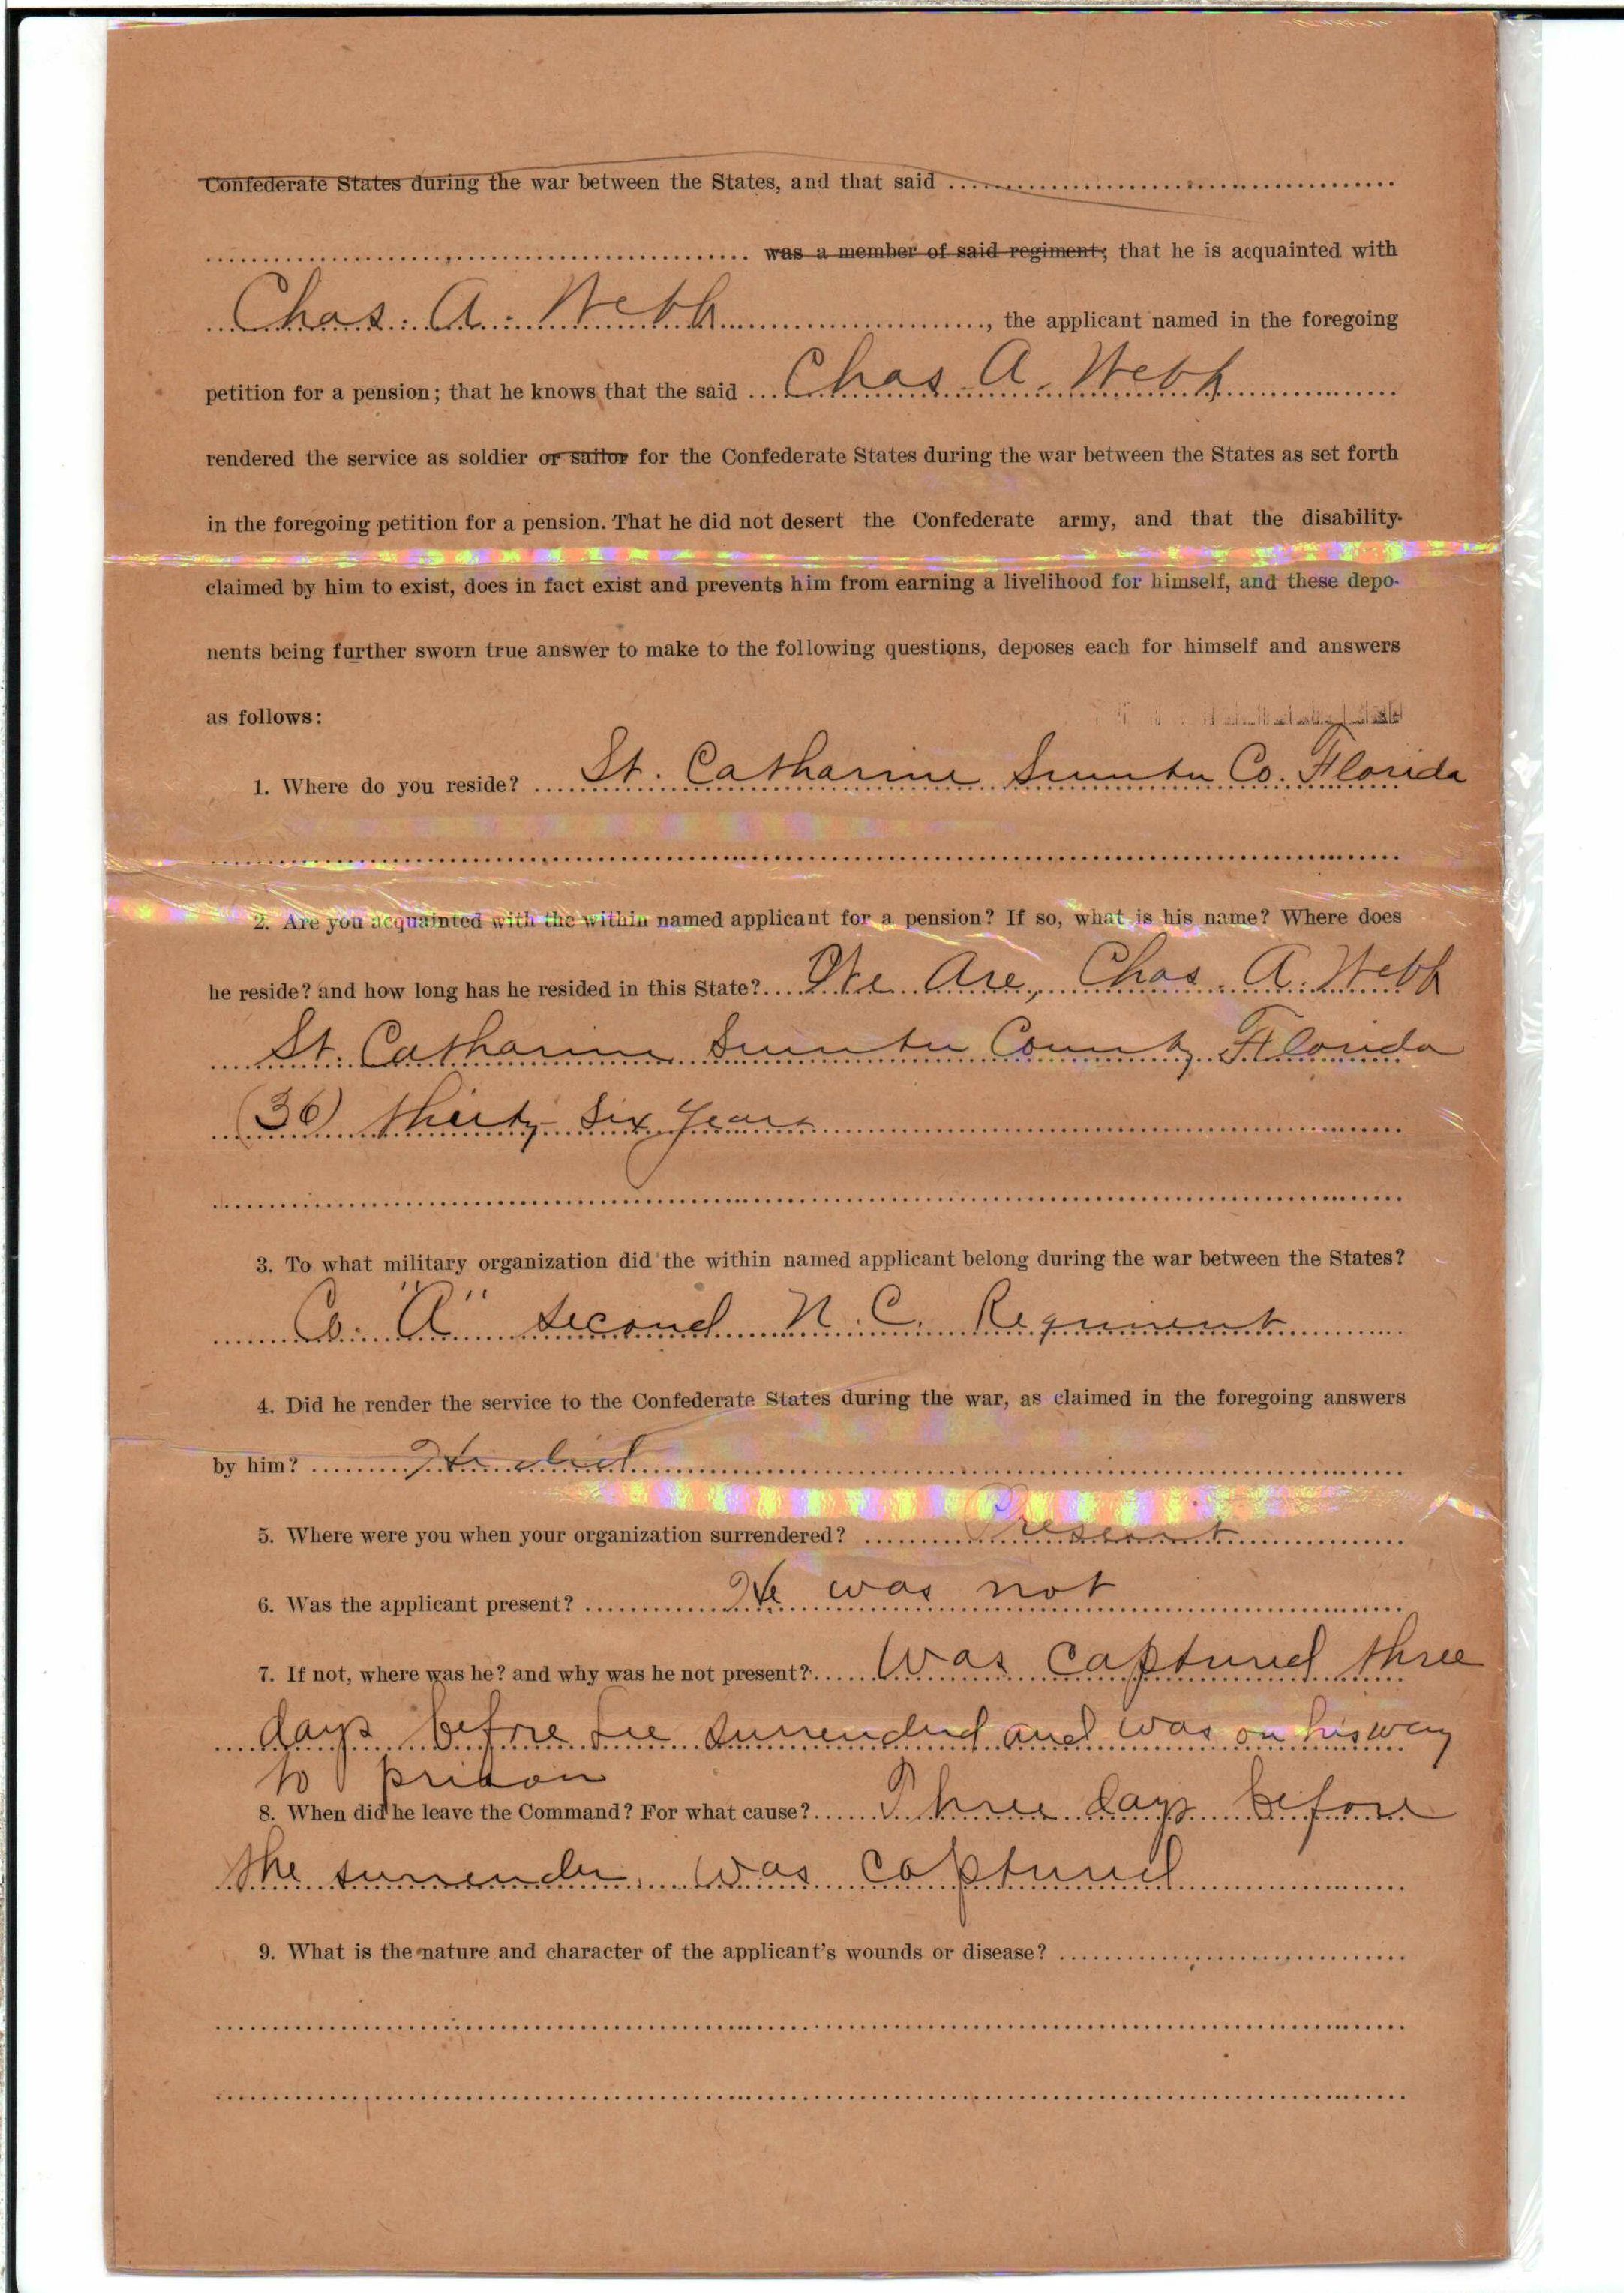 Confederate States during the war between the States, and that said
was a member of said regiment; that he is acquainted with
Chas. A. Webb, the applicant named in the foregoing
petition for a pension; that he knows that the said Chas. A. Webb
rendered the service as soldier or sailor for the Confederate States during the war between the States as set forth
in the foregoing petition for a pension. That he did not desert the Confederate army, and that the disability
claimed by him to exist, does in fact exist and prevents him from earning a livelihood for himself, and these depo-
nents being further sworn true answer to make to the following questions, deposes each for himself and answers
as follows:
1. Where do you reside? St. Catharine Sumter Co. Florida
2. Are you acquainted with the within named applicant for a pension? If so, what is his name? Where does
he reside? and how long has he resided in this State? We Are, Chas. A. Webb
St. Catharine Sumter County Florida
(36) thirty six years
3. To what military organization did the within named applicant belong during the war between the States?
Co. "A" Second N. C. Regiment
4. Did he render the service to the Confederate States during the war, as claimed in the foregoing answers
by him? He did
5. Where were you when your organization surrendered? Present
6. Was the applicant present? He was not
7. If not, where was he? and why was he not present? Was captured three
days before Lee surrendered and was on his way
to prison
8. When did he leave the Command? For what cause? Three days before
the surrender. was captured
9. What is the nature and character of the applicant's wounds or disease?